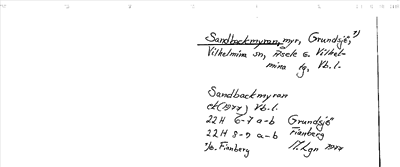 Sandbackmyran, myr, Grundsjö, 7)
Vilhelmina sn, Åsele s. Vilhel-
mina tg, Vb. l.
Sandbackmyran
ek(1977) Vb. l.
22H 6-7 a-b Grundsjö
22H 8-9 a-b Fianberg
Fianberg Lgn 1977